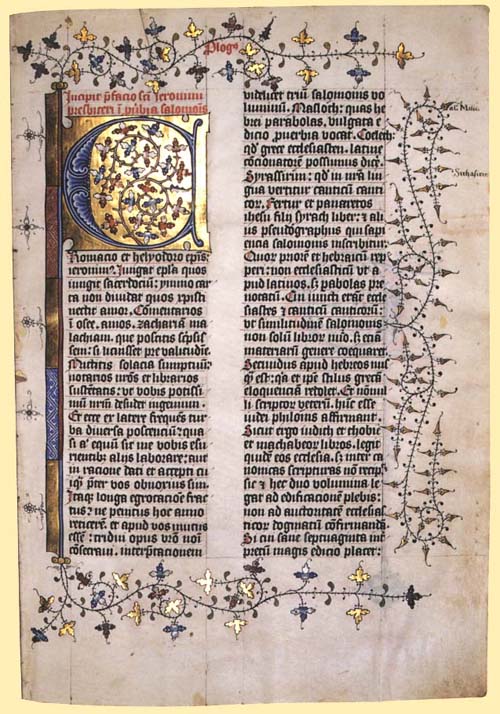 Plogus
Incipit pfacio sci Jeronimi
presbiteri i pvbia salomois
C
Romacio et helyodoro epis
ieronim9. Jungat epla quos
iungit sacerdociu: ymmo car
ta non diuidat quos xpisti
nectit amor. Comentarios
i osee. amos. zacharia ma
lachiam. que poscitis scpsis
sem: si licuisset pre valitudie.
Mittitis solacia sumptuum
notarios nros et librarios
sustetatis: ut vobis potissi
mu nrum desudet ingeniu.
Et ecce ex latere freques tur
ba diuersa poscenciu: qua
si a equu sit me vobis esu
rientib; aliis laborare: aut
in racione dati et accepti cu
iq; pter vos obnoxius sim.
Itaq; longa egrotacioe frac
tus: ne penitus hoc anno
reticere. et apud vos mutus
esse: tridui opus vro noi
cosecraui. interptacionem
videlicet triu salomonis vo
luminu. Masloth: quas he
brei parabolas. vulgata e
dicio puerbia vocat. Coeleth:
qd grece ecclesiasten. latine
cocionatore possumus dice.
Syrassirim: qd in nra lin
gua vertitur canticu canti
cor. Fertur et panaretos
ihesu filii syrach liber: et ali
us pseudographus qui sapi
encia salomonis inscribitur.
Quor priore et hebraicu rep
peri: non ecclesiasticu ut a
pud latinos. s; pabolas pre
notatu. Cui iuncti erant eccle
siastes et canticu canticoru:
ut similitudine salomonis
non solu libror nuo. s; etia
materiaru genere coequaret.
Secundus apud hebreos nus
q est: qa et ipe stilus greca
eloquencia redolet. Et nonul
li scriptor veteru huc esse
iudei philonis affirmant.
Sicut ergo iudith et thobie
et machabeor libros. legit
quide eos ecclesia. s; inter ca
nonicas scripturas non recip.
sic et hec duo volumina le
gat ad edificacione plebis:
non ad auctoritate ecclesias
ticor dogmatu cofirmanda.
Si cui sane septuaginta in
pretu magis edicio placet: